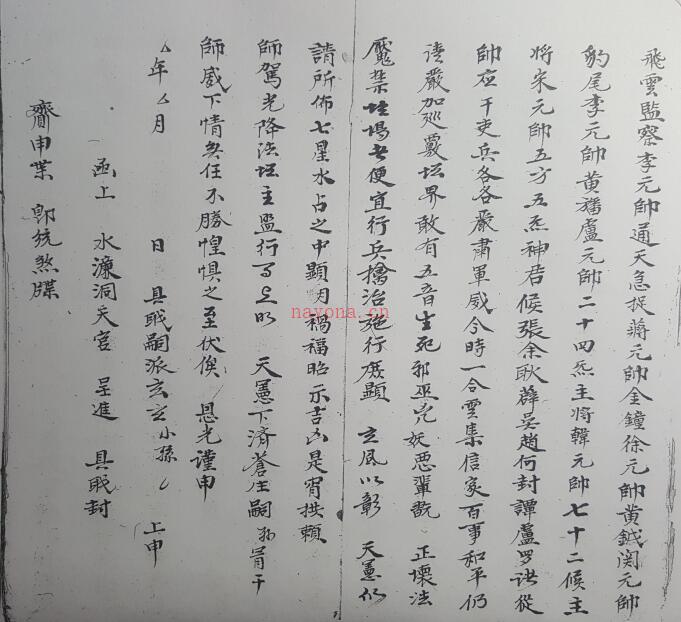 飛雲監察李元帥通天急捉蔣元帥金鐘徐元帥黃鉞関元帥
豹尾李元帥黃旛盧元帥二十四炁主將韓元帥七十二候主
將宋元帥五方五炁神君候張余耿薛吳趙何封譚盧罗諸從
帥应干吏兵各各嚴肅軍威令時一合雲集信家百事和平仍
嚴加廵覆坛界敢有五音生死邪巫妖恶輩 正壞法
魘禁坛場者便宜行兵擒治施行庶顯 玄風以彰 天憲仍
請所佈七星水占之中顯明禍福昭示吉凶是宵拱賴
師駕光降法坛主盟行 天憲下濟蒼生嗣 冐干
師威下情無任不勝惶惧之至伏俟 恩光謹申
年 月 日 具職嗣派玄 小孫 上申
函上 水濂洞天宫 呈進 具職封
齎申業 即統煞牒
nayona.cn